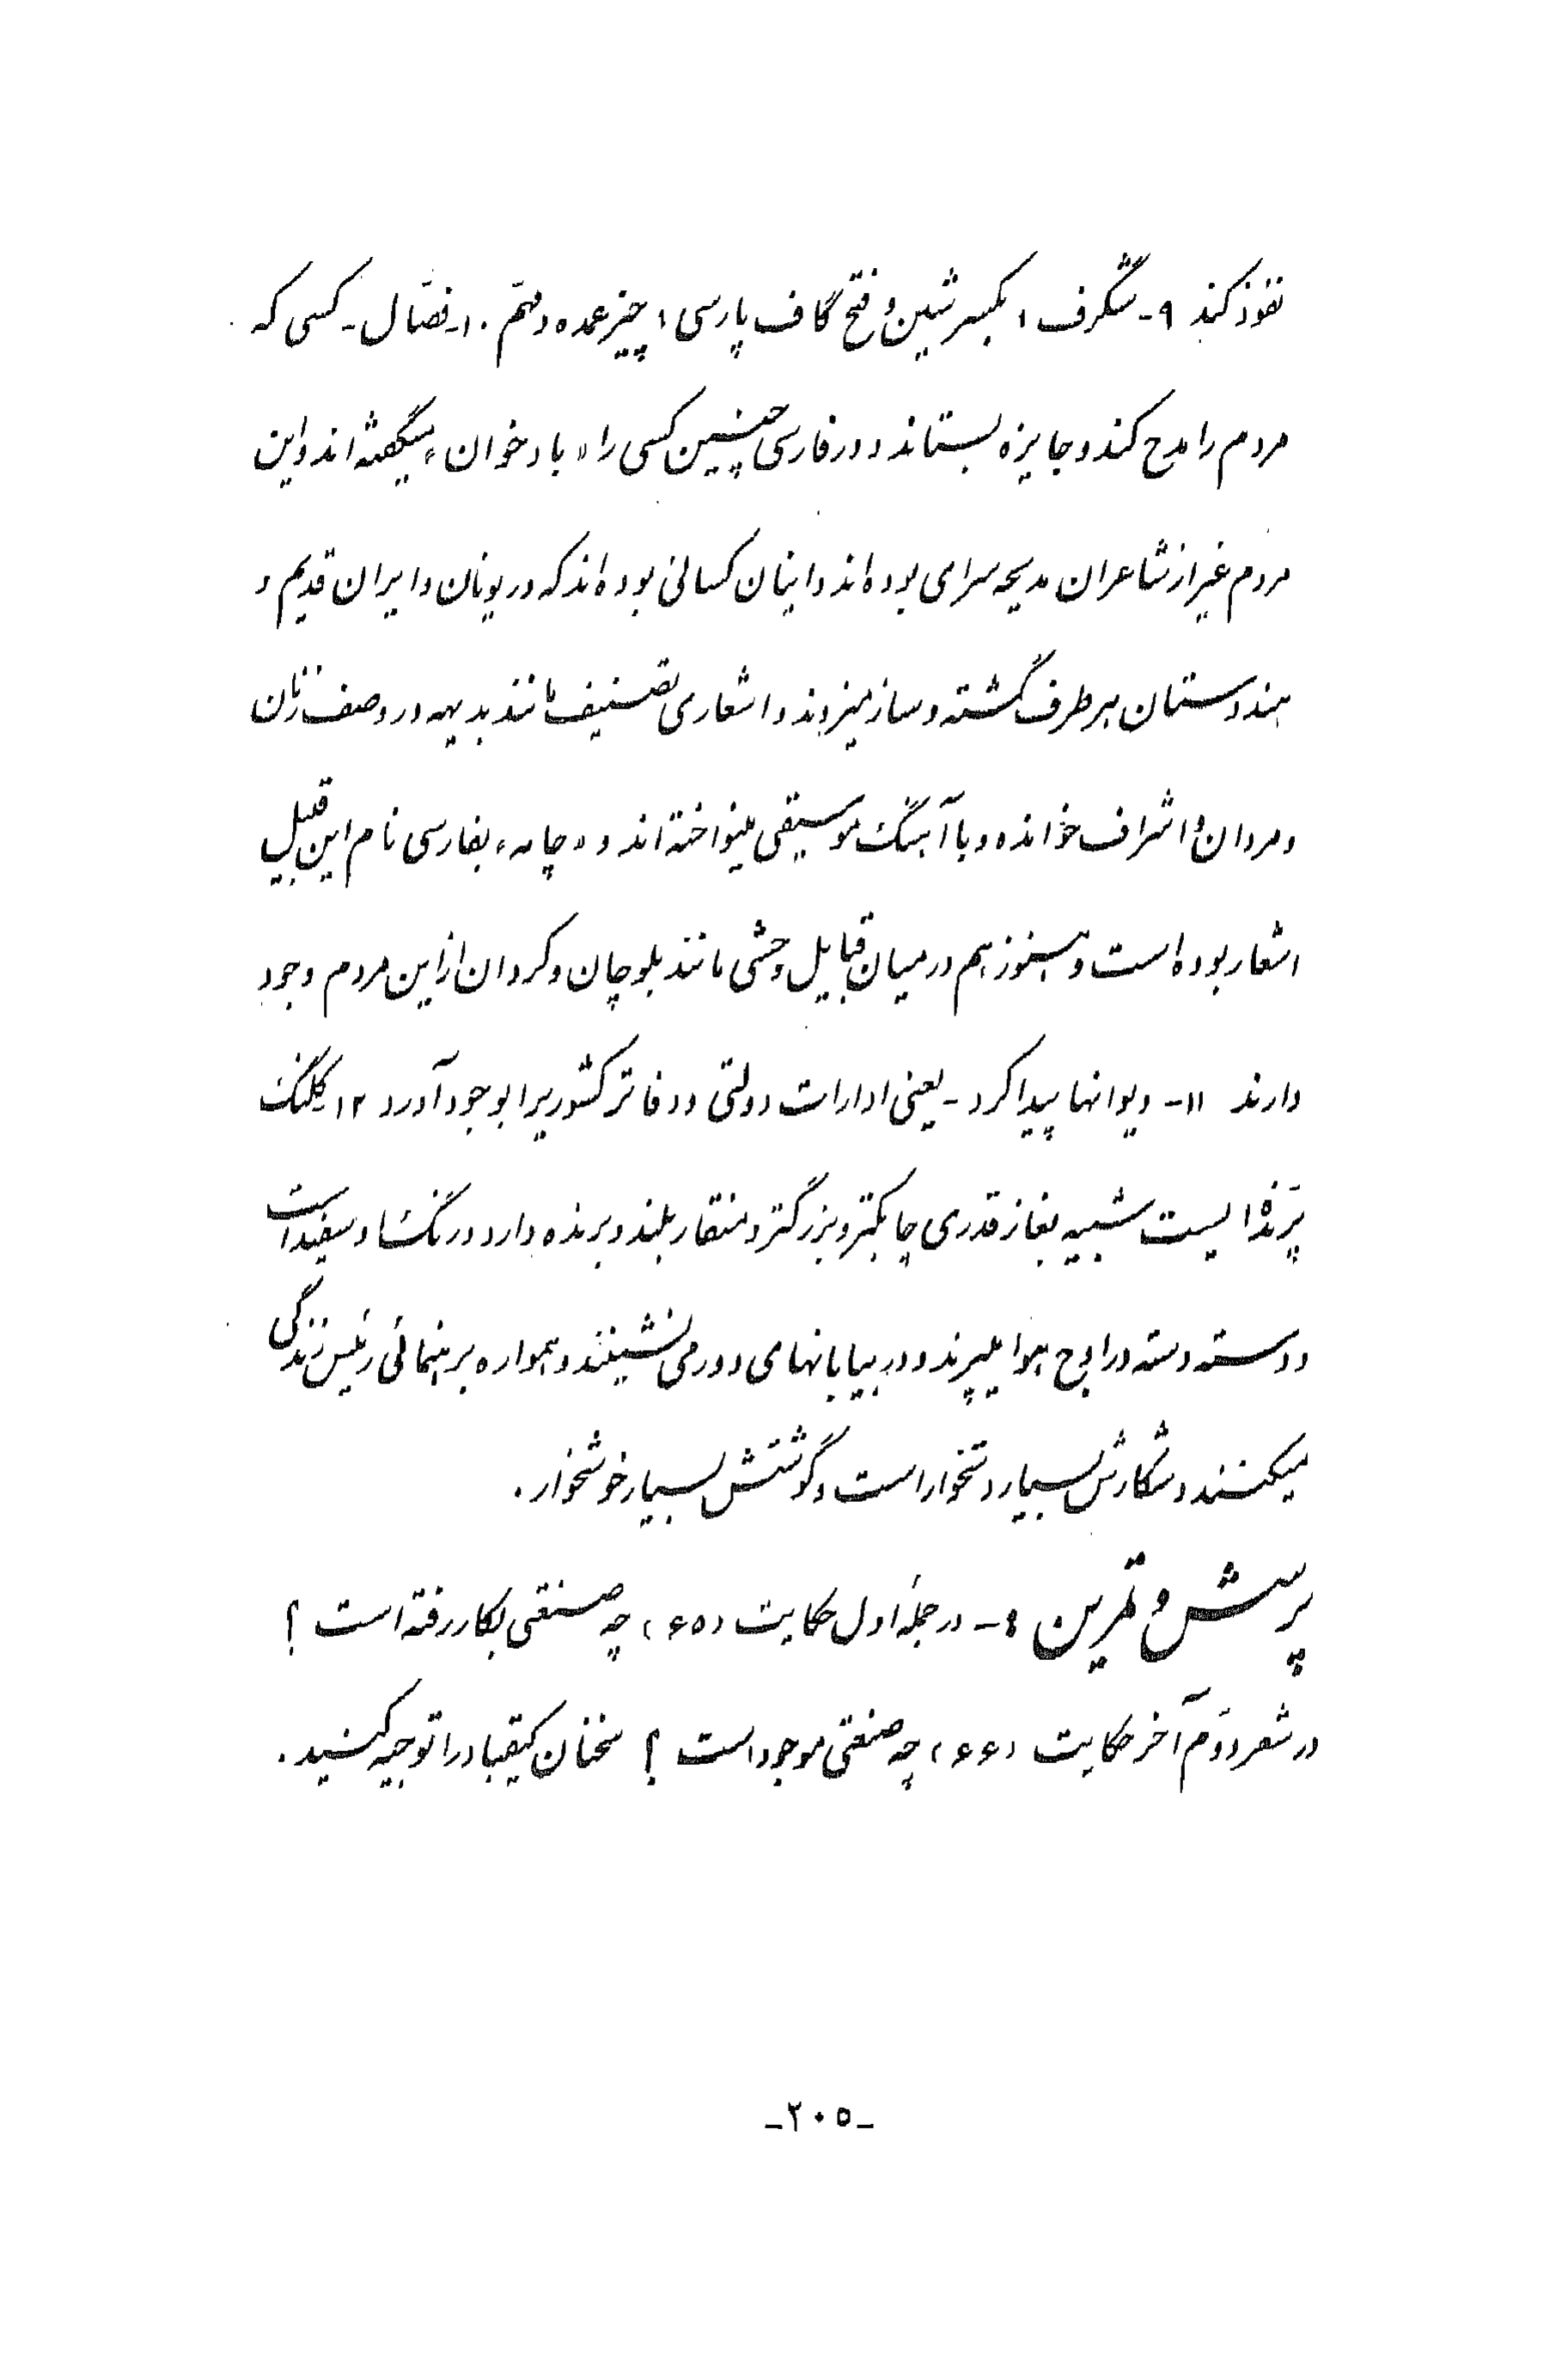 نفوذ کند ۹- شگرف (بکسر شین و فتح گاف پارسی) چیز عمده و مهّم ۱۰- فصّال - کسی که
مردم را مدح کند و جایزه بستاند و در فارسی چنین کسی را «بادخوان» میگفته‌اند و این
مردم غیر از شاعران مدیحه سرای بوده‌اند و اینان کسانی بوده‌اند که در یونان و ایران قدیم و
هندوستان بهر طرف گشته و ساز میزدند و اشعاری تصنیف مانند بدیهه در وصف زنان
و مردان و اشراف خوانده و با آهنگ موسیقی مینواخته‌اند و «چامه» بفارسی نام این قبیل
اشعار بوده است و هنوز هم در میان قبایل وحشی مانند بلوچان و کردان از این مردم وجود
دارند ۱۱- دیوانها پیدا کرد - یعنی ادارات دولتی و دفاتر کشوریرا بوجود آورد ۱۲- کلنگ
پَرنده‌ایست شبیه بغاز قدری چابکتر و بزرگتر و منقار بلند و برنده دارد و رنگش سفید است
و دسته دسته در اوج هوا میپرند و در بیابانهای دور می‌نشینند و همواره برهنمائی رئیس زندگی
میکنند و شکارش بسیار دشخوار است و گوشتش بسیار خوشخوار .
پرسش و تمرین ٤- در جملهٔ اول حکایت (۶۵) چه صنعتی بکار رفته است ؟
در شعر دوّم آخر حکایت (۶۶) چه صنعتی موجود است ؟ سخنان کیقباد را توجیه کنید .
-۲۰۵-